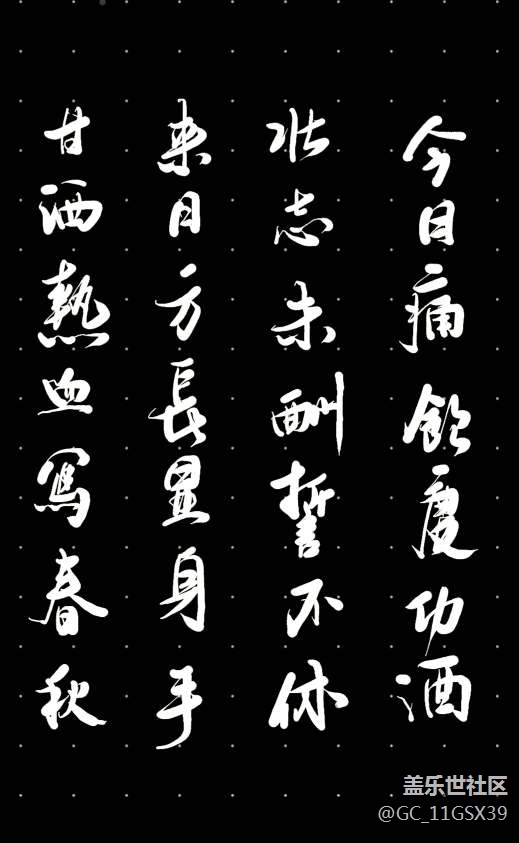 今日痛飲慶功酒
壮志未酬誓不休
来日方長显身手
甘洒熱血寫春秋
盖乐世社区
@GC_11GSX39